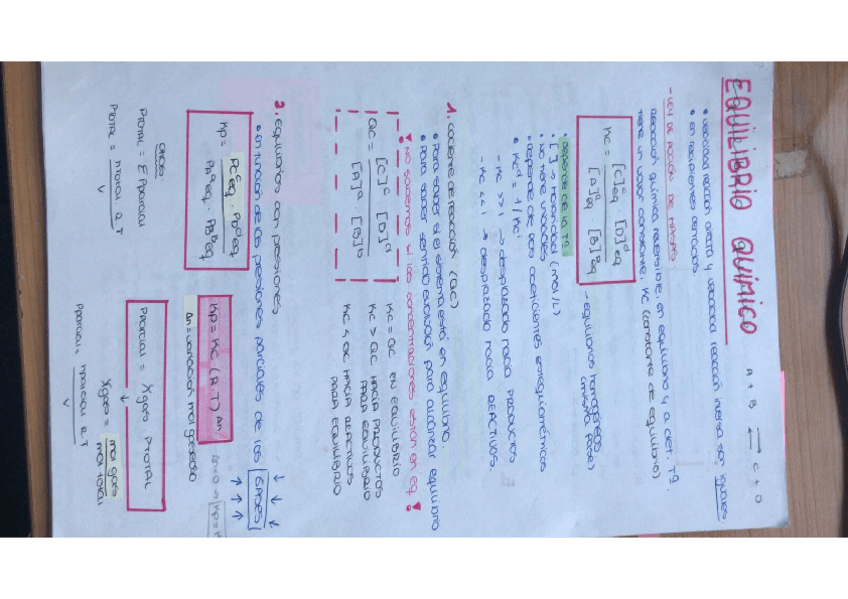 EQUILIBRIO QUÍMICO
A + B ⇌ C + D
• velocidad reacción directa y velocidad reacción inversa son iguales
• en recipientes cerrados
- LEY DE ACCIÓN DE MASAS
reacción química reversible, en equilibrio y a det. Tª
tiene un valor constante, Kc (constante de equilibrio)
Kc = [C]^c eq [D]^d eq / [A]^a eq [B]^b eq
- equilibrios homogéneos
(misma fase)
• depende de la Tª
• [ ] → Molaridad (mol/L)
• no tiene unidades
• depende de los coeficientes estequiométricos
• Kc^-1 = 1/Kc
- Kc >> 1 → desplazado hacia PRODUCTOS
- Kc << 1 → desplazado hacia REACTIVOS.
1. cociente de reacción (Qc)
• Para saber si el sistema está en equilibrio.
• Para saber sentido evolución para alcanzar equilibrio
♥ NO sabemos si las concentraciones están en eq !
Qc = [C]^c [D]^d / [A]^a [B]^b
Kc = Qc EN EQUILIBRIO
Kc > Qc HACIA PRODUCTOS
PARA EQUILIBRIO
Kc < Qc HACIA REACTIVOS
PARA EQUILIBRIO
2. equilibrios con presiones
• en función de las presiones parciales de los GASES
Kp = PC^c eq · PD^d eq / PA^a eq · PB^b eq
Kp = Kc (R.T)^Δn
Δn = variación mol gaseoso
Δn=0 → Kp =
PTOTAL = Σ Pparcial
PTOTAL = nTotal R T / V
Pparcial = Xgas PTOTAL
↓
Xgas = mol gas / mol total
Pparcial = nparcial R T / V